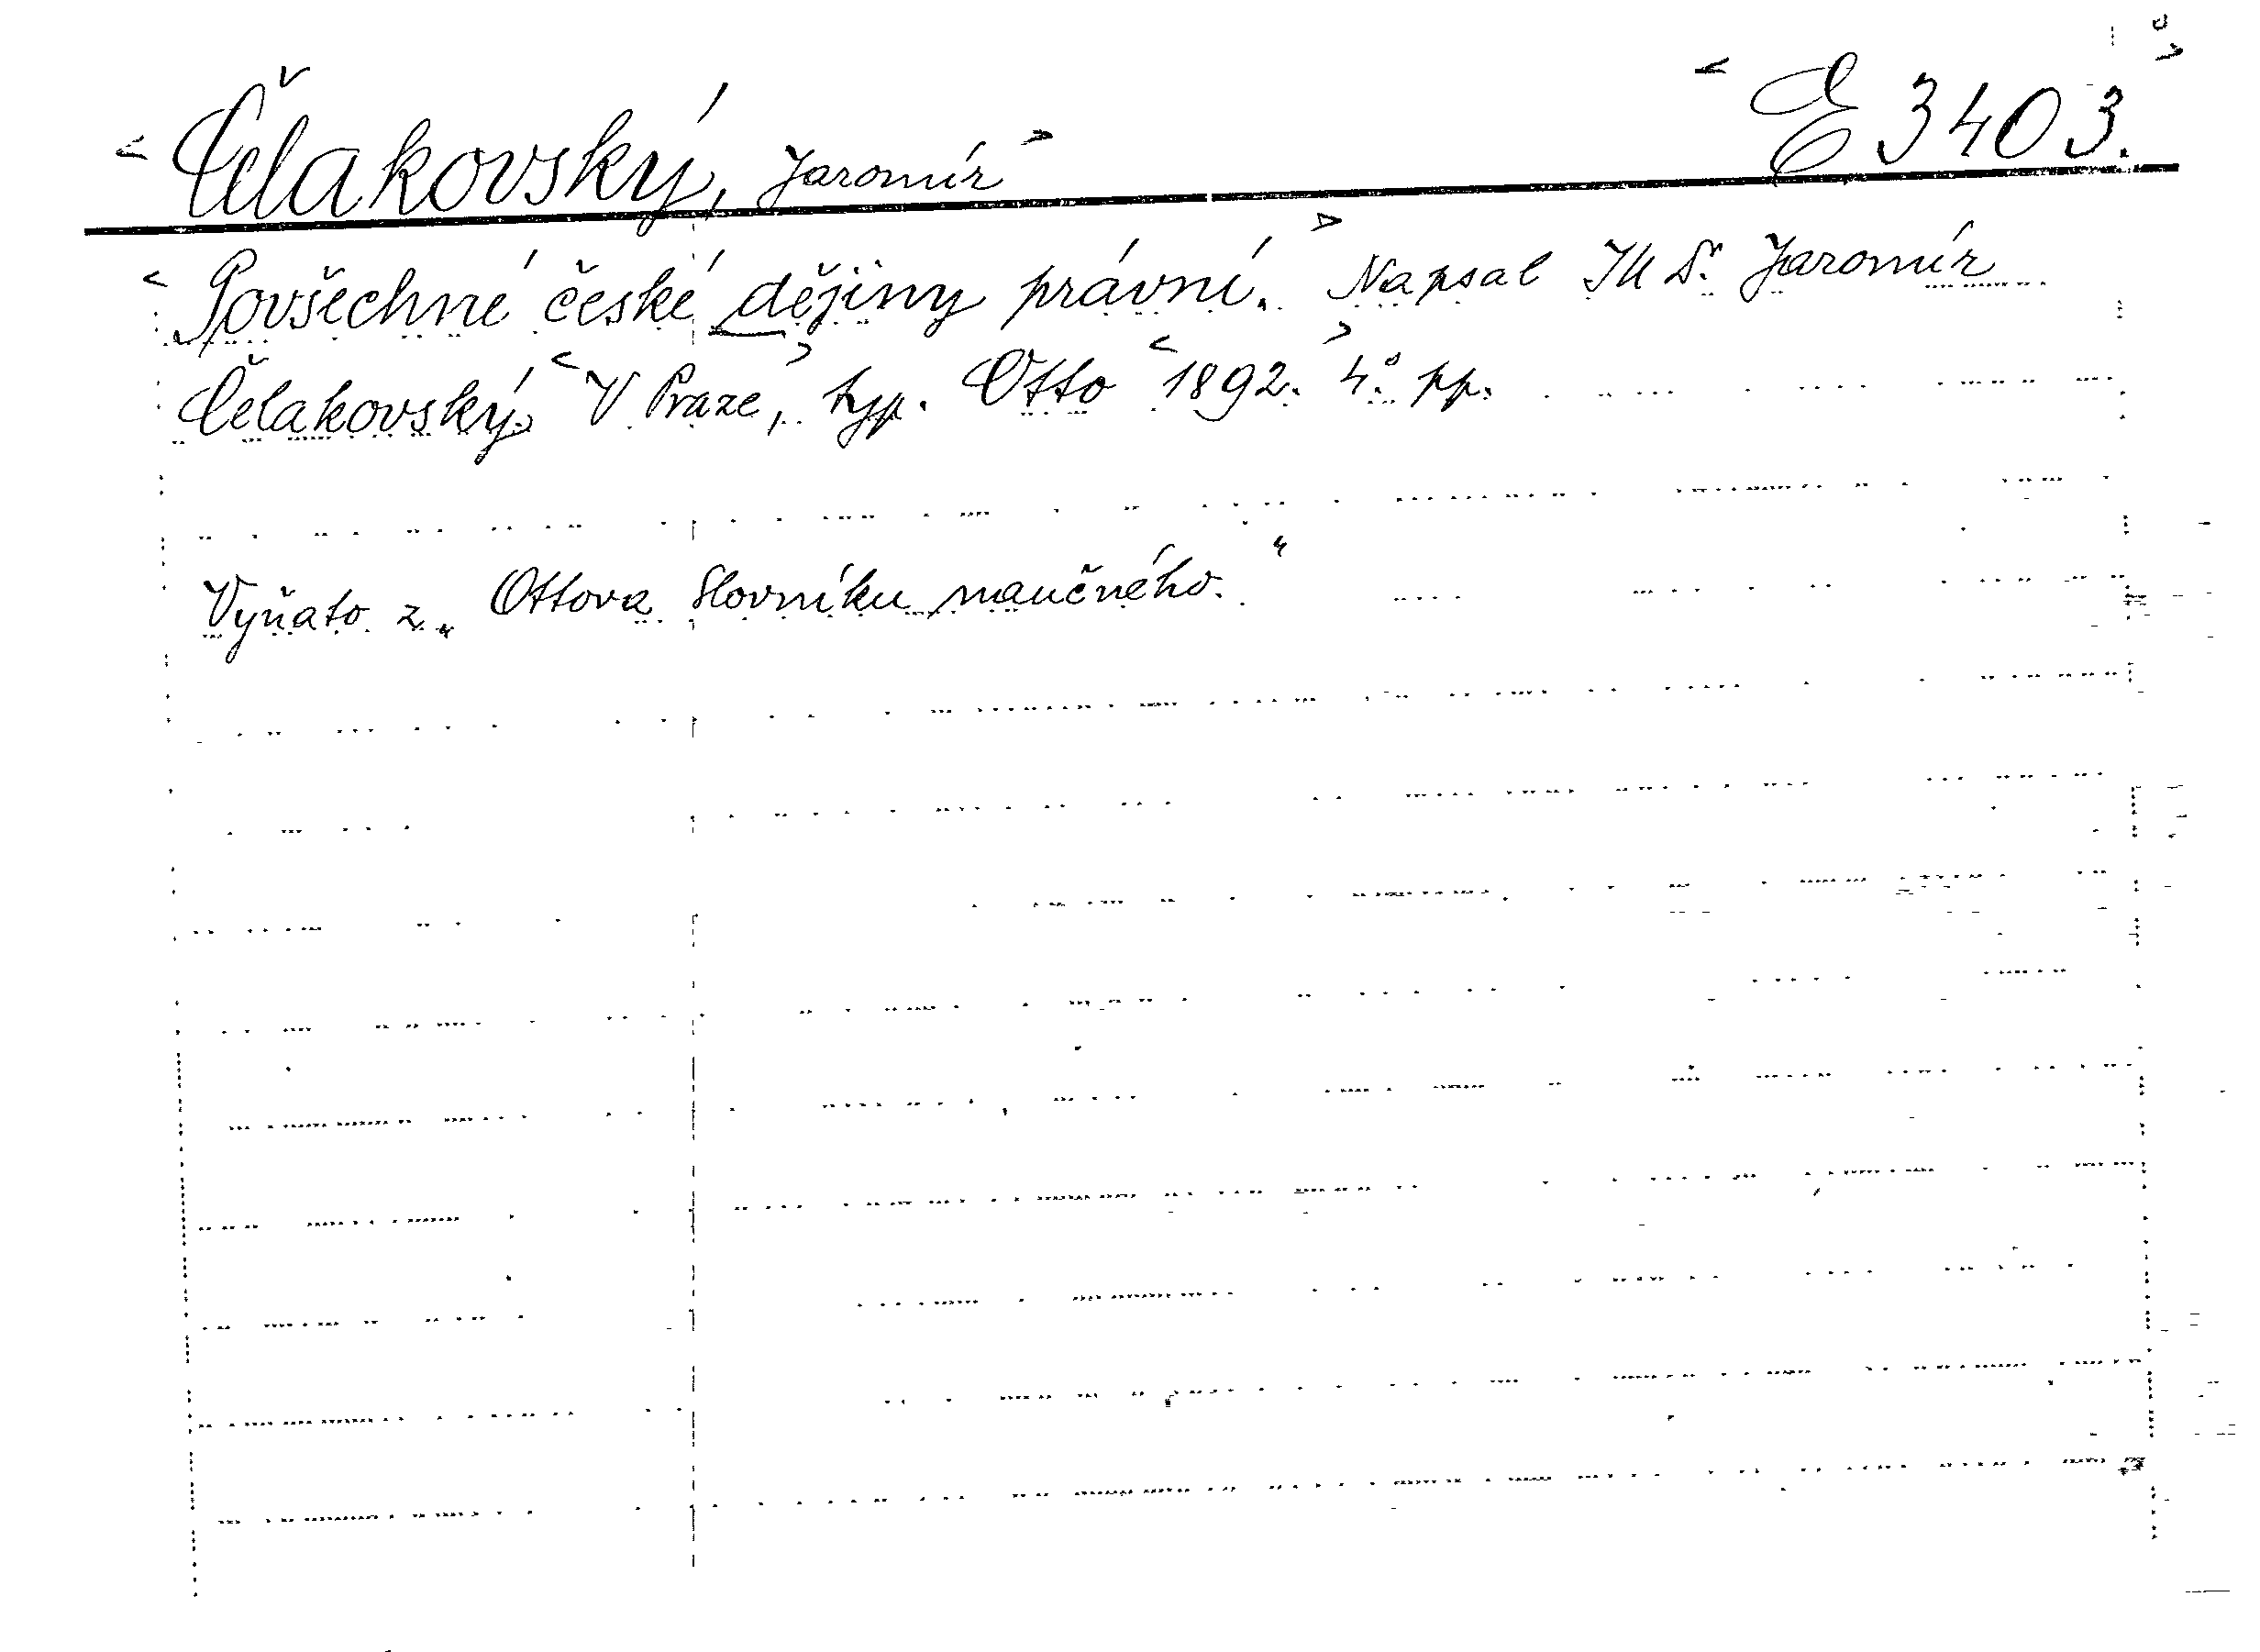 Čelakovský, Jaromír E 3403.
Povšechné české dějiny právní. Napsal JUDr. Jaromír
Čelakovský. V Praze, typ. Otto 1892. 4° pp.
Vyňato z „Ottova Slovníku naučného.“